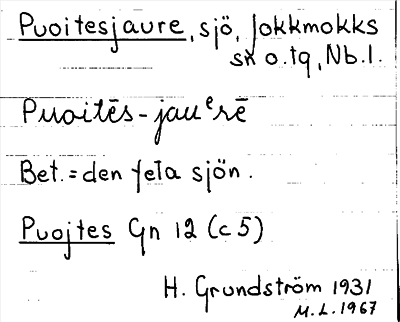 Puoitesjaure, sjö, Jokkmokks
sn o. tq, Nb. l.
Puoitēs-jauᵉrē
Bet. = den feta sjön.
Puojtes Gn 12 (c 5)
H. Grundström 1931
M. L. 1967